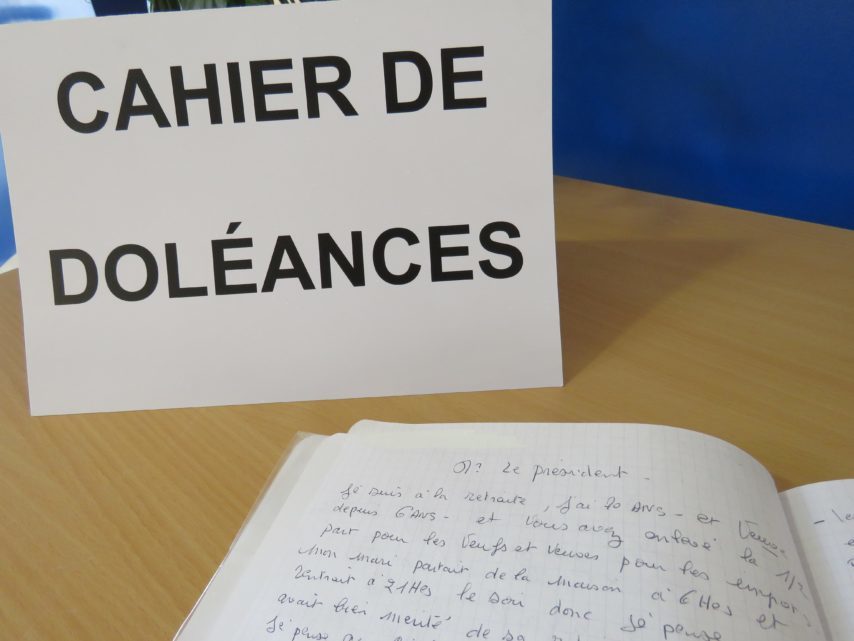 CAHIER DE
DOLÉANCES
Le président -
Je suis à la retraite, j'ai 60 ANS - et Veuve
depuis 6 ANS - et vous avez enlevé la 1/2
part pour les Veufs et Veuves pour les impôts
Mon mari partait de la maison à 6 Hes et
rentrait à 21 Hes le soir donc je pense
avait bien mérité de sa
Je pense